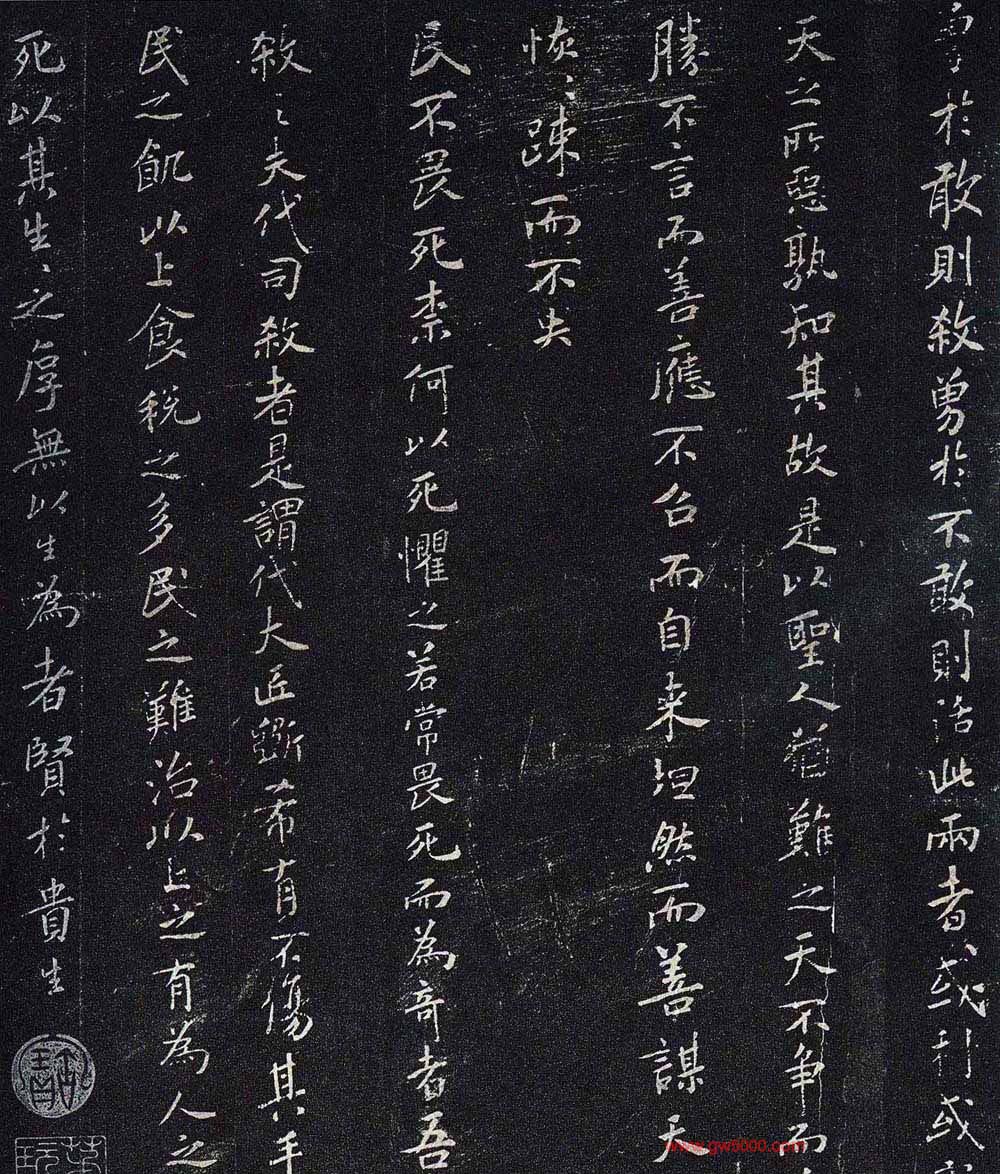 於敢則敘勇於不敢則活此兩者或利或
天之所惡孰知其故是以聖人猶難之天不争而
勝不言而善應不召而自来坦然而善謀天
恢〻踈而不失
民不畏死柰何以死懼之若常畏死而為奇者吾
敘〻夫代司敘者是謂代大匠斲希有不傷其手
民之飢以上食税之多民之難治以上之有為人之
死以其生〻之厚無以生為者賢於貴生
www.gw5000.com